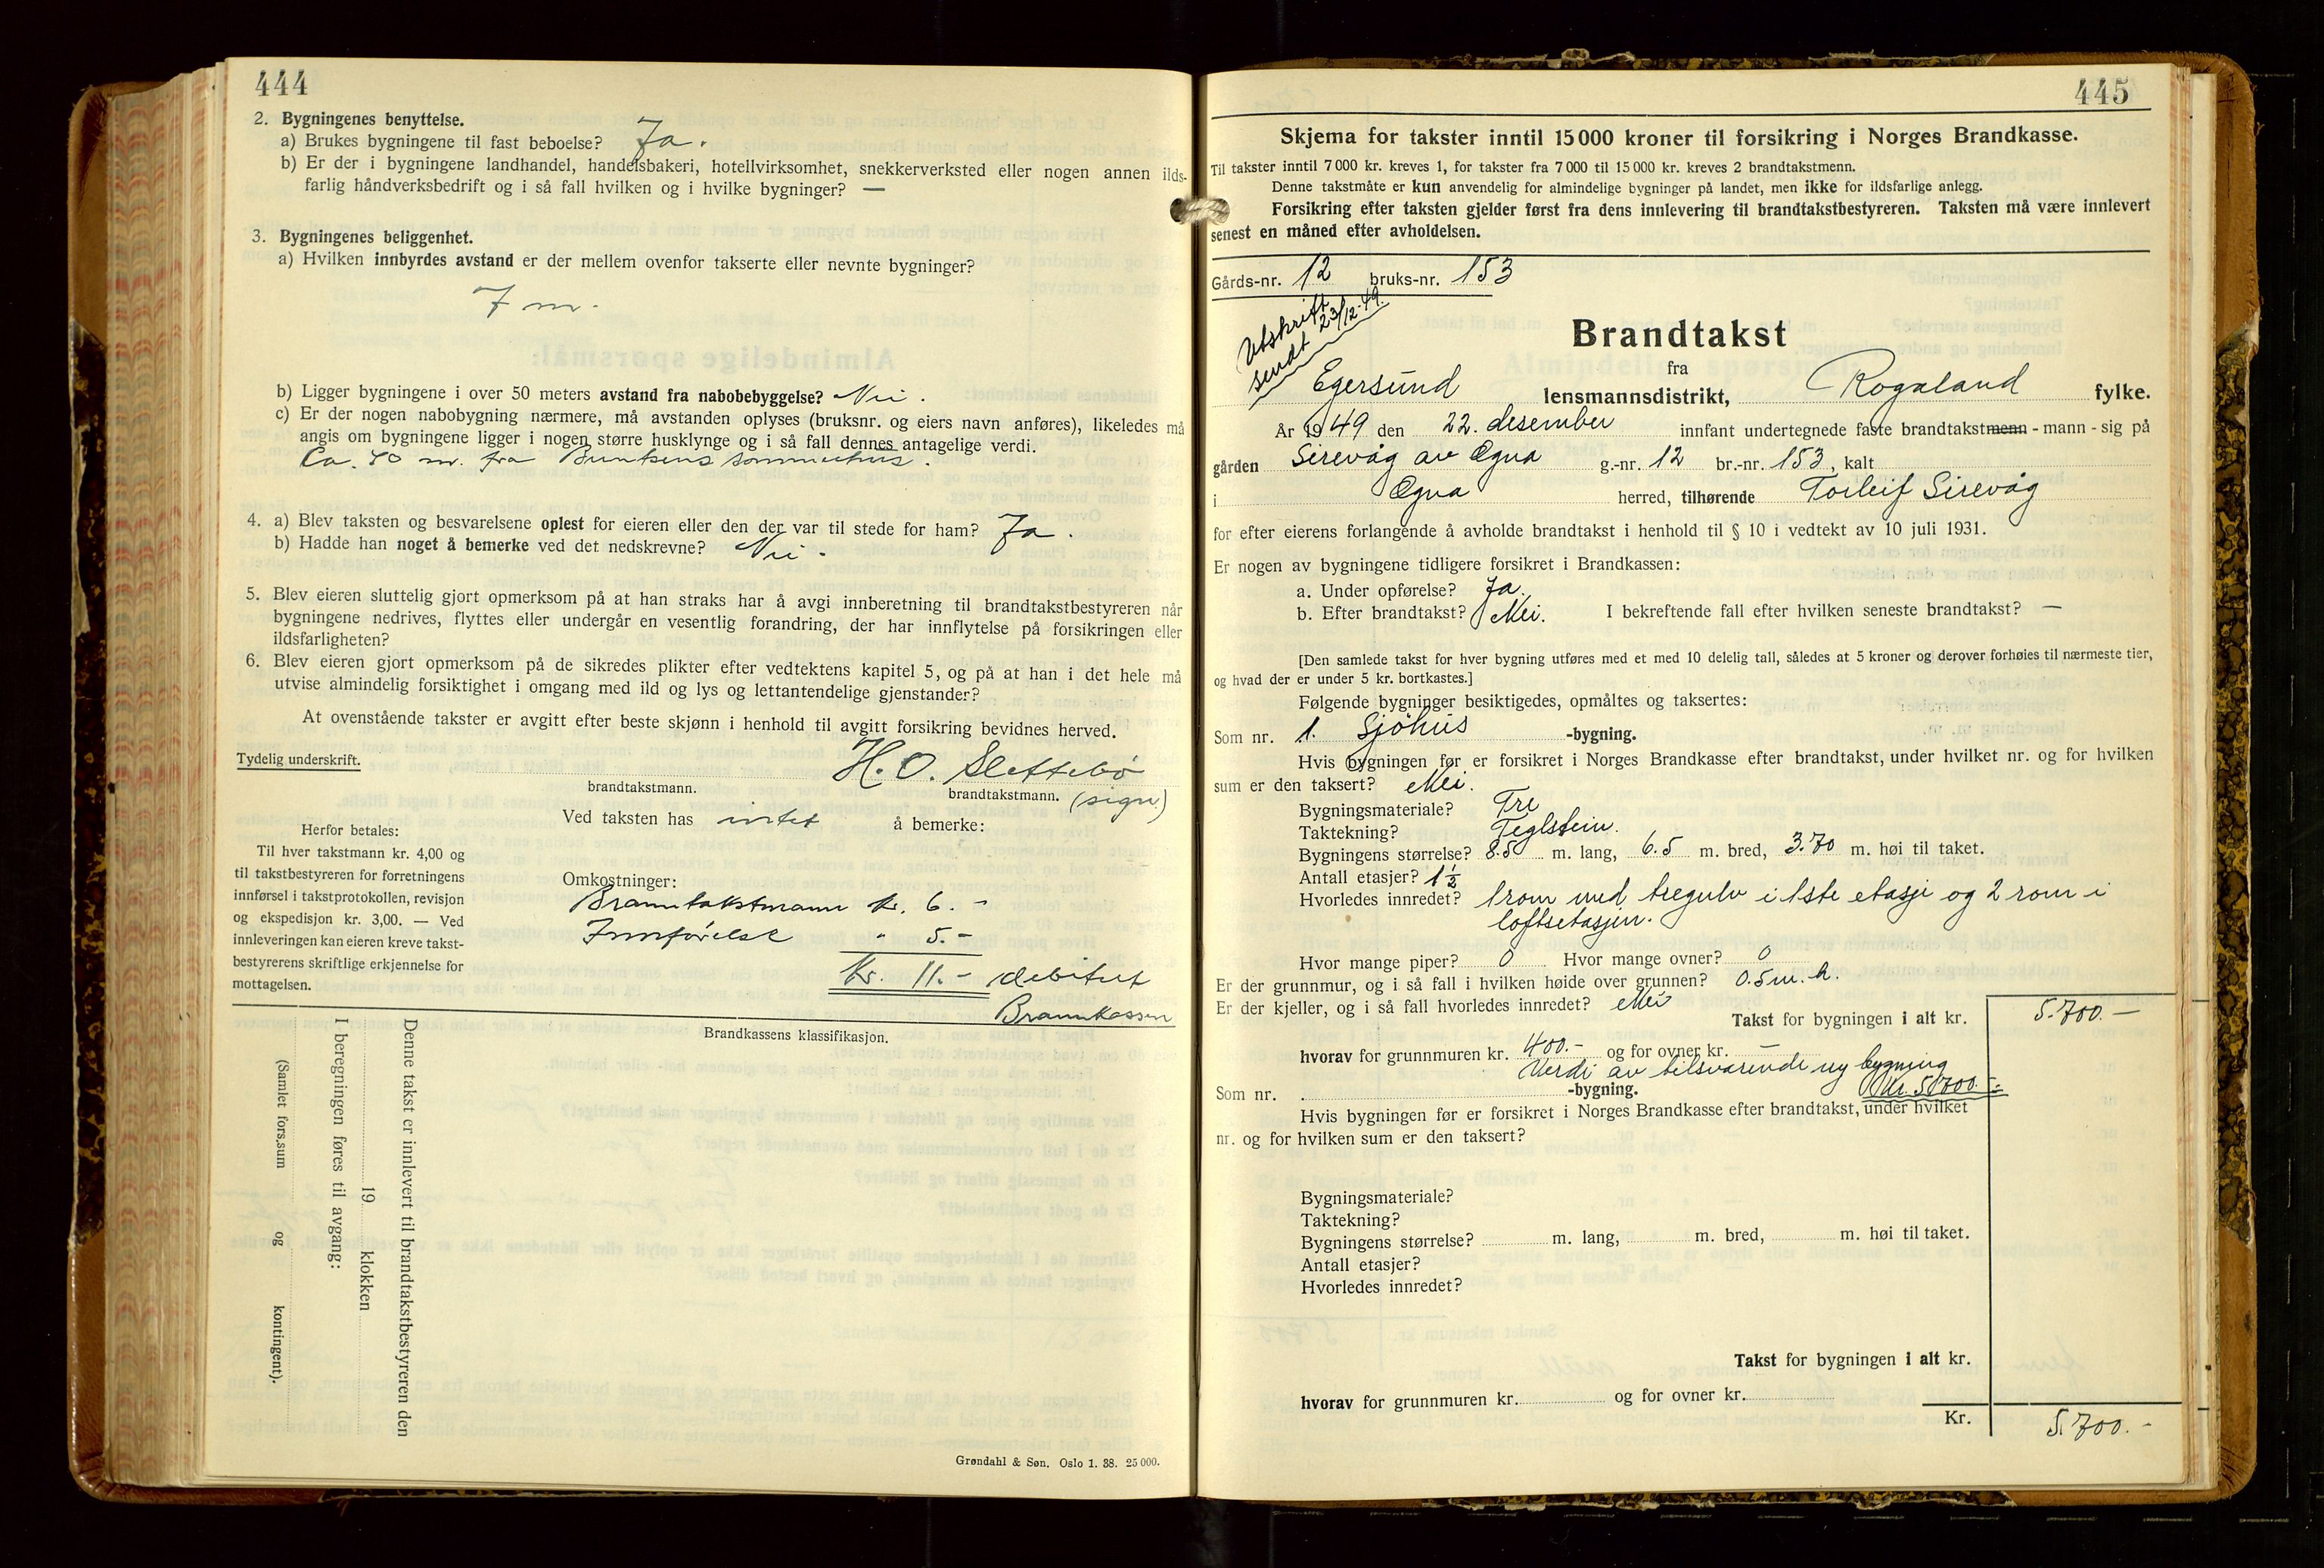 444
2. Bygningenes benyttelse.
a) Brukes bygningene til fast beboelse? Ja.
b) Er der i bygningene landhandel, handelsbakeri, hotellvirksomhet, snekkerverksted eller nogen annen ilds-
farlig håndverksbedrift og i så fall hvilken og i hvilke bygninger? —
3. Bygningenes beliggenhet.
a) Hvilken innbyrdes avstand er der mellem ovenfor takserte eller nevnte bygninger?
7 m.
b) Ligger bygningene i over 50 meters avstand fra nabobebyggelse? Nei.
c) Er der nogen nabobygning nærmere, må avstanden oplyses (bruksnr. og eiers navn anføres), likeledes må
angis om bygningene ligger i nogen større husklynge og i så fall dennes antagelige verdi.
Ca. 40 m. fra Buntsens sommerhus.
4. a) Blev taksten og besvarelsene oplest for eieren eller den der var til stede for ham? Ja.
b) Hadde han noget å bemerke ved det nedskrevne? Nei.
5. Blev eieren sluttelig gjort opmerksom på at han straks har å avgi innberetning til brandtakstbestyreren når
bygningene nedrives, flyttes eller undergår en vesentlig forandring, der har innflytelse på forsikringen eller
ildsfarligheten?
6. Blev eieren gjort opmerksom på de sikredes plikter efter vedtektens kapitel 5, og på at han i det hele må
utvise almindelig forsiktighet i omgang med ild og lys og lettantendelige gjenstander?
At ovenstående takster er avgitt efter beste skjønn i henhold til avgitt forsikring bevidnes herved.
Tydelig underskrift.
H. O. Slettebø
brandtakstmann.
brandtakstmann. (sign)
Ved taksten has intet å bemerke:
Herfor betales:
Til hver takstmann kr. 4,00 og
til takstbestyreren for forretningens
innførsel i takstprotokollen, revisjon
og ekspedisjon kr. 3,00. — Ved
innleveringen kan eieren kreve takst-
bestyrerens skriftlige erkjennelse for
mottagelsen.
Omkostninger:
Branntakstmann kr. 6.-
Innførelse " 5.-
Kr. 11.- debitert
Brannkassen
Brandkassens klassifikasjon.
Denne takst er innlevert til brandtakstbestyreren den
19 klokken
I beregningen føres til avgang:
(Samlet fors.sum og kontingent).
Grøndahl & Søn. Oslo 1. 38. 25 000.
445
Skjema for takster inntil 15 000 kroner til forsikring i Norges Brandkasse.
Til takster inntil 7 000 kr. kreves 1, for takster fra 7 000 til 15 000 kr. kreves 2 brandtakstmenn.
Denne takstmåte er kun anvendelig for almindelige bygninger på landet, men ikke for ildsfarlige anlegg.
Forsikring efter taksten gjelder først fra dens innlevering til brandtakstbestyreren. Taksten må være innlevert
senest en måned efter avholdelsen.
Gårds-nr. 12 bruks-nr. 153
Utskrift
sendt 23/12-49.
Brandtakst
fra
Egersund lensmannsdistrikt, Rogaland fylke.
År 1949 den 22. desember innfant undertegnede faste brandtakstmenn - mann - sig på
gården Sirevåg av Ogna g.-nr. 12 br.-nr. 153, kalt
i Ogna herred, tilhørende Torleif Sirevåg
for efter eierens forlangende å avholde brandtakst i henhold til § 10 i vedtekt av 10 juli 1931.
Er nogen av bygningene tidligere forsikret i Brandkassen:
a. Under opførelse? Ja.
b. Efter brandtakst? Nei. I bekreftende fall efter hvilken seneste brandtakst? —
[Den samlede takst for hver bygning utføres med et med 10 delelig tall, således at 5 kroner og derover forhøies til nærmeste tier,
og hvad der er under 5 kr. bortkastes.]
Følgende bygninger besiktigedes, opmåltes og taksertes:
Som nr. 1. Sjøhus -bygning.
Hvis bygningen før er forsikret i Norges Brandkasse efter brandtakst, under hvilket nr. og for hvilken
sum er den taksert? Nei.
Bygningsmateriale? Tre
Taktekning? Teglstein.
Bygningens størrelse? 8.5 m. lang, 6.5 m. bred, 3.70 m. høi til taket.
Antall etasjer? 1 ½
Hvorledes innredet? 1 rom med tregulv i 1ste etasje og 2 rom i
loftsetasjen.
Hvor mange piper? 0 Hvor mange ovner? 0
Er der grunnmur, og i så fall i hvilken høide over grunnen? 0.5 m. h.
Er der kjeller, og i så fall hvorledes innredet? Nei
Takst for bygningen i alt kr. 5.700.—
hvorav for grunnmuren kr. 400.- og for ovner kr. —
Verdi av tilsvarende ny bygning
Som nr. -bygning. Kr. 5.700.-
Hvis bygningen før er forsikret i Norges Brandkasse efter brandtakst, under hvilket
nr. og for hvilken sum er den taksert?
Bygningsmateriale?
Taktekning?
Bygningens størrelse? m. lang, m. bred, m. høi til taket.
Antall etasjer?
Hvorledes innredet?
Takst for bygningen i alt kr.
hvorav for grunnmuren kr. og for ovner kr.
Kr. 5.700.-